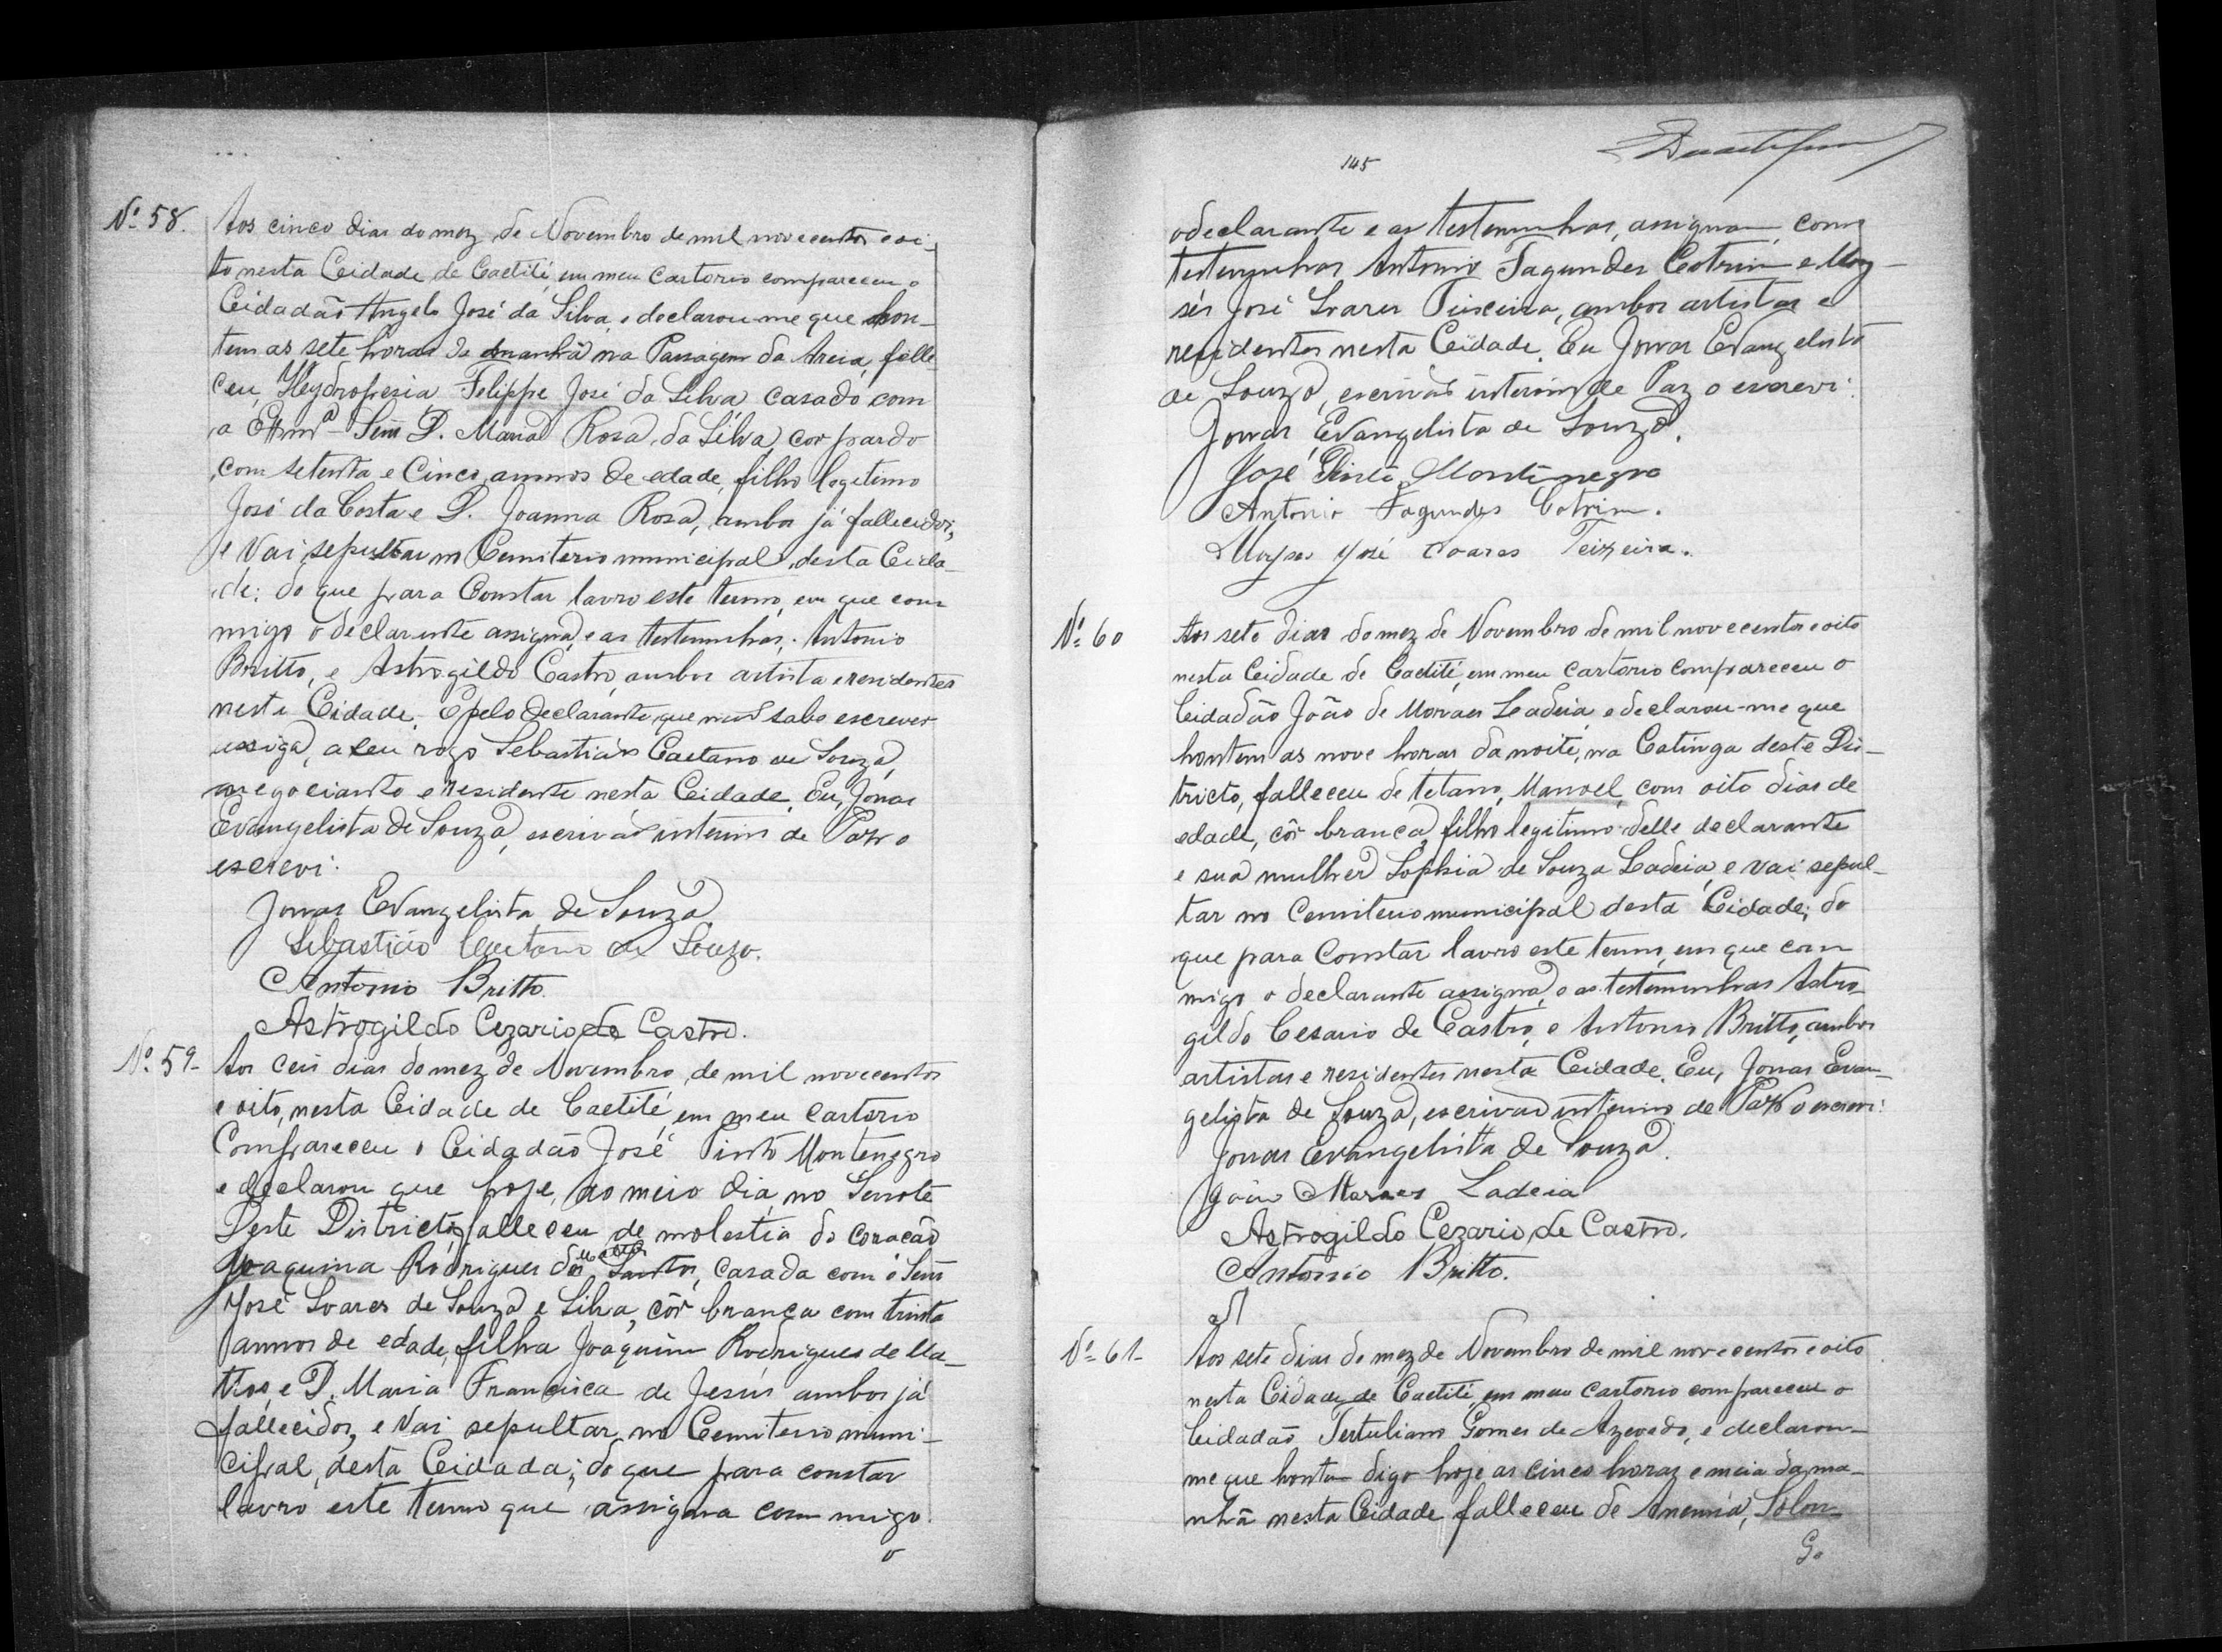 Nº 58.
Aos cinco dias do mez de Novembro de mil novecentos e oi-
to nesta Cidade de Caetité, em meu Cartorio compareceu o
Cidadão Angelo José da Silva, e declarou-me que hon-
tem as sete horas da manhã na Passagem da Areia, falle
ceu, Hydropesia Felippe José da Silva casado com
a Exmª Senrª D. Maria Rosa da Silva, cor pardo
com setenta e cinco annos de edade, filho legitimo
José da Costa e D. Joanna Rosa, ambos já fallecidos,
e vai sepultar no Cemiterio municipal desta Cida-
de: do que para Constar lavro este termo, em que com
migo o declarante assigna, e as testemunhas, Antonio
Britto, e Astrogildo Castro, ambos artista e residentes
nesta Cidade. E pelo declarante que não sabe escrever
assiga, a seu rogo Sebastião Caetano de Souza,
negociante e residente nesta Cidade. Eu, Jonas
Evangelista de Souza, escrivão interino de Paz o
escrevi.
Jonas Evangelista de Souza
Sebastião Caetano de Souza.
Antonio Britto.
Astrogildo Cezario de Castro.
Nº 59-
Aos ceis dias do mez de Novembro, de mil novecentos
e oito, nesta Cidade de Caetité, em meu Cartorio
Compareceu o Cidadão José Pinto Montenegro
e declarou que hoje, ao meio dia, no Serrote
Deste Districto, falleceu de molestia do coração
Joaquina Rodrigues dos Santos, casada com o Senr
José Soares de Souza e Silva, côr branca com trinta
annos de edade, filha Joaquim Rodrigues de Ma-
ttos, e D. Maria Francisca de Jesus ambos já
fallecidos, e vai sepultar no Cemiterio muni-
cipal, desta Cidada; do que para constar
lavro este termo que assigna com migo
o
145
o declarante e as testemunhas, assignam, como
testemunhas Antonio Fagundes Cotrim e Moy-
sés José Soares Teixeira, ambos artistas e
residentes nesta Cidade. Eu Jonas Evangelista
de Souza, escrivão interino de Paz o escrevi.
Jonas Evangelista de Souza.
José Pinto Montenegro
Antonio Fagundes Cotrim.
Moyses José Soares Teixeira.
Nº 60
Aos sete dias do mez de Novembro de mil novecentos e oito
nesta Cidade de Caetité, em meu Cartorio compareceu o
Cidadão João de Moraes Ladeia, e declarou-me que
hontem as nove horas da noite, na Catinga deste Dis-
tricto, falleceu de tetano, Manoel, com oito dias de
edade, côr branca, filho legitimo delle declarante
e sua mulher Sophia de Souza Ladeia, e vai sepul-
tar no Cemiterio municipal desta Cidade; do
que para Constar lavro este termo, em que com
migo o declarante assigna, e as testemunhas Astro-
gildo Cesario de Castro, e Antonio Britto, ambos
artistas e residentes nesta Cidade. Eu, Jonas Evan-
gelista de Souza, escrivão interino de Paz o escrevi.
Jonas Evangelista de Souza.
João Moraes Ladeia
Astrogildo Cezario de Castro.
Antonio Britto.
Nº 61-
Aos sete dias do mez de Novembro de mil novecentos e oito
nesta Cidade de Caetité, em meu Cartorio compareceu o
Cidadão Tertuliano Gomes de Azevedo, e declarou-
me que hontem digo hoje as cinco horas e meia da ma-
nhã nesta Cidade falleceu de Anemia, Solon
G.